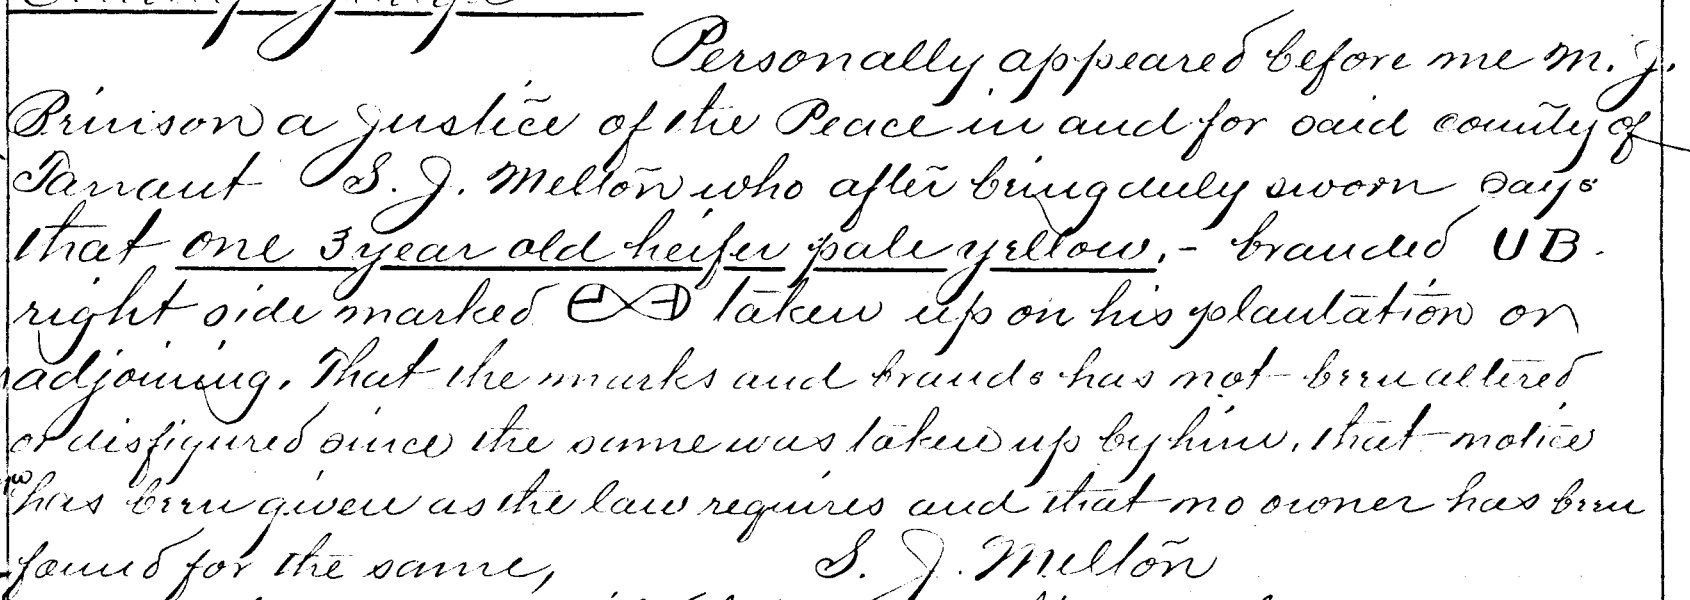 Personally appeared before me M. J.
Brinson a Justice of the Peace in and for said county of
Tarrant S. J. Melton who after being duly sworn says
that one 3 year old heifer pale yellow, - branded UB.
right side marked taken up on his plantation or
adjoining. That the marks and brands has not been altered
or disfigured since the same was taken up by him, that notice
has been given as the law requires and that no owner has been
found for the same, S. J. Melton